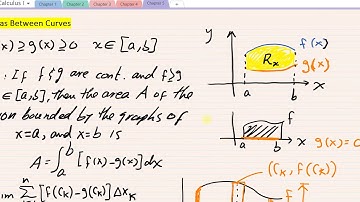 Calculus I
Chapter 4
Chapter 5
as Between Curves
x) ≥ g(x) ≥ 0 x ∈ [a,b]
: If f & g are cont. and f ≥ g
∈ [a,b], then the area A of the
on bounded by the graphs of
x=a, and x=b is
A = ∫_a^b [f(x)-g(x)] dx
im Σ^n [f(c_k)-g(c_k)] Δx_k
y
f(x)
R_x
g(x)
a b x
f
a b x g(x)=0
(c_k, f(c_k))
f